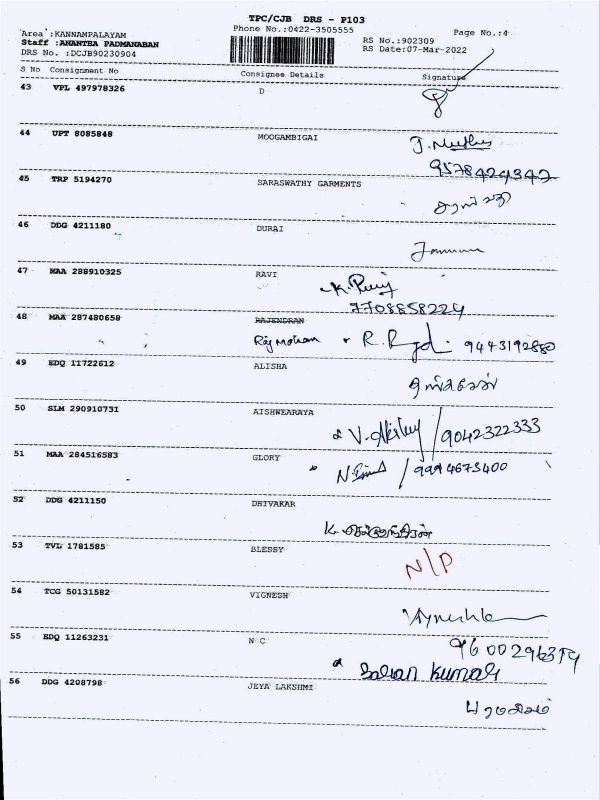 TPC/CJB DRS - P103
Area :KANNAMPALAYAM Phone No.:0422-3505555 RS No.:902309 Page No.:4
Staff :ANANTHA PADMANABAN RS Date:07-Mar-2022
DRS No. :DCJB90230904
S No Consignment No Consignee Details Signature
43 VPL 497978326 D
44 UPT 8085848 MOOGAMBIGAI
9578424347
45 TRP 5194270 SARASWATHY GARMENTS
சரஸ்வதி
46 DDG 4211180 DURAI
47 MAA 288910325 RAVI
7708858224
48 MAA 287480658 RAJENDRAN
Raj mohan 9443192880
49 EDQ 11722612 ALISHA
50 SLM 290910731 AISHWEARAYA
9042322333
51 MAA 284516583 GLORY
9994673400
52 DDG 4211150 DHIVAKAR
53 TVL 1781585 BLESSY
N/P
54 TCG 50131582 VIGNESH
55 EDQ 11263231 N C
Kumar
56 DDG 4208798 JEYA LAKSHMI